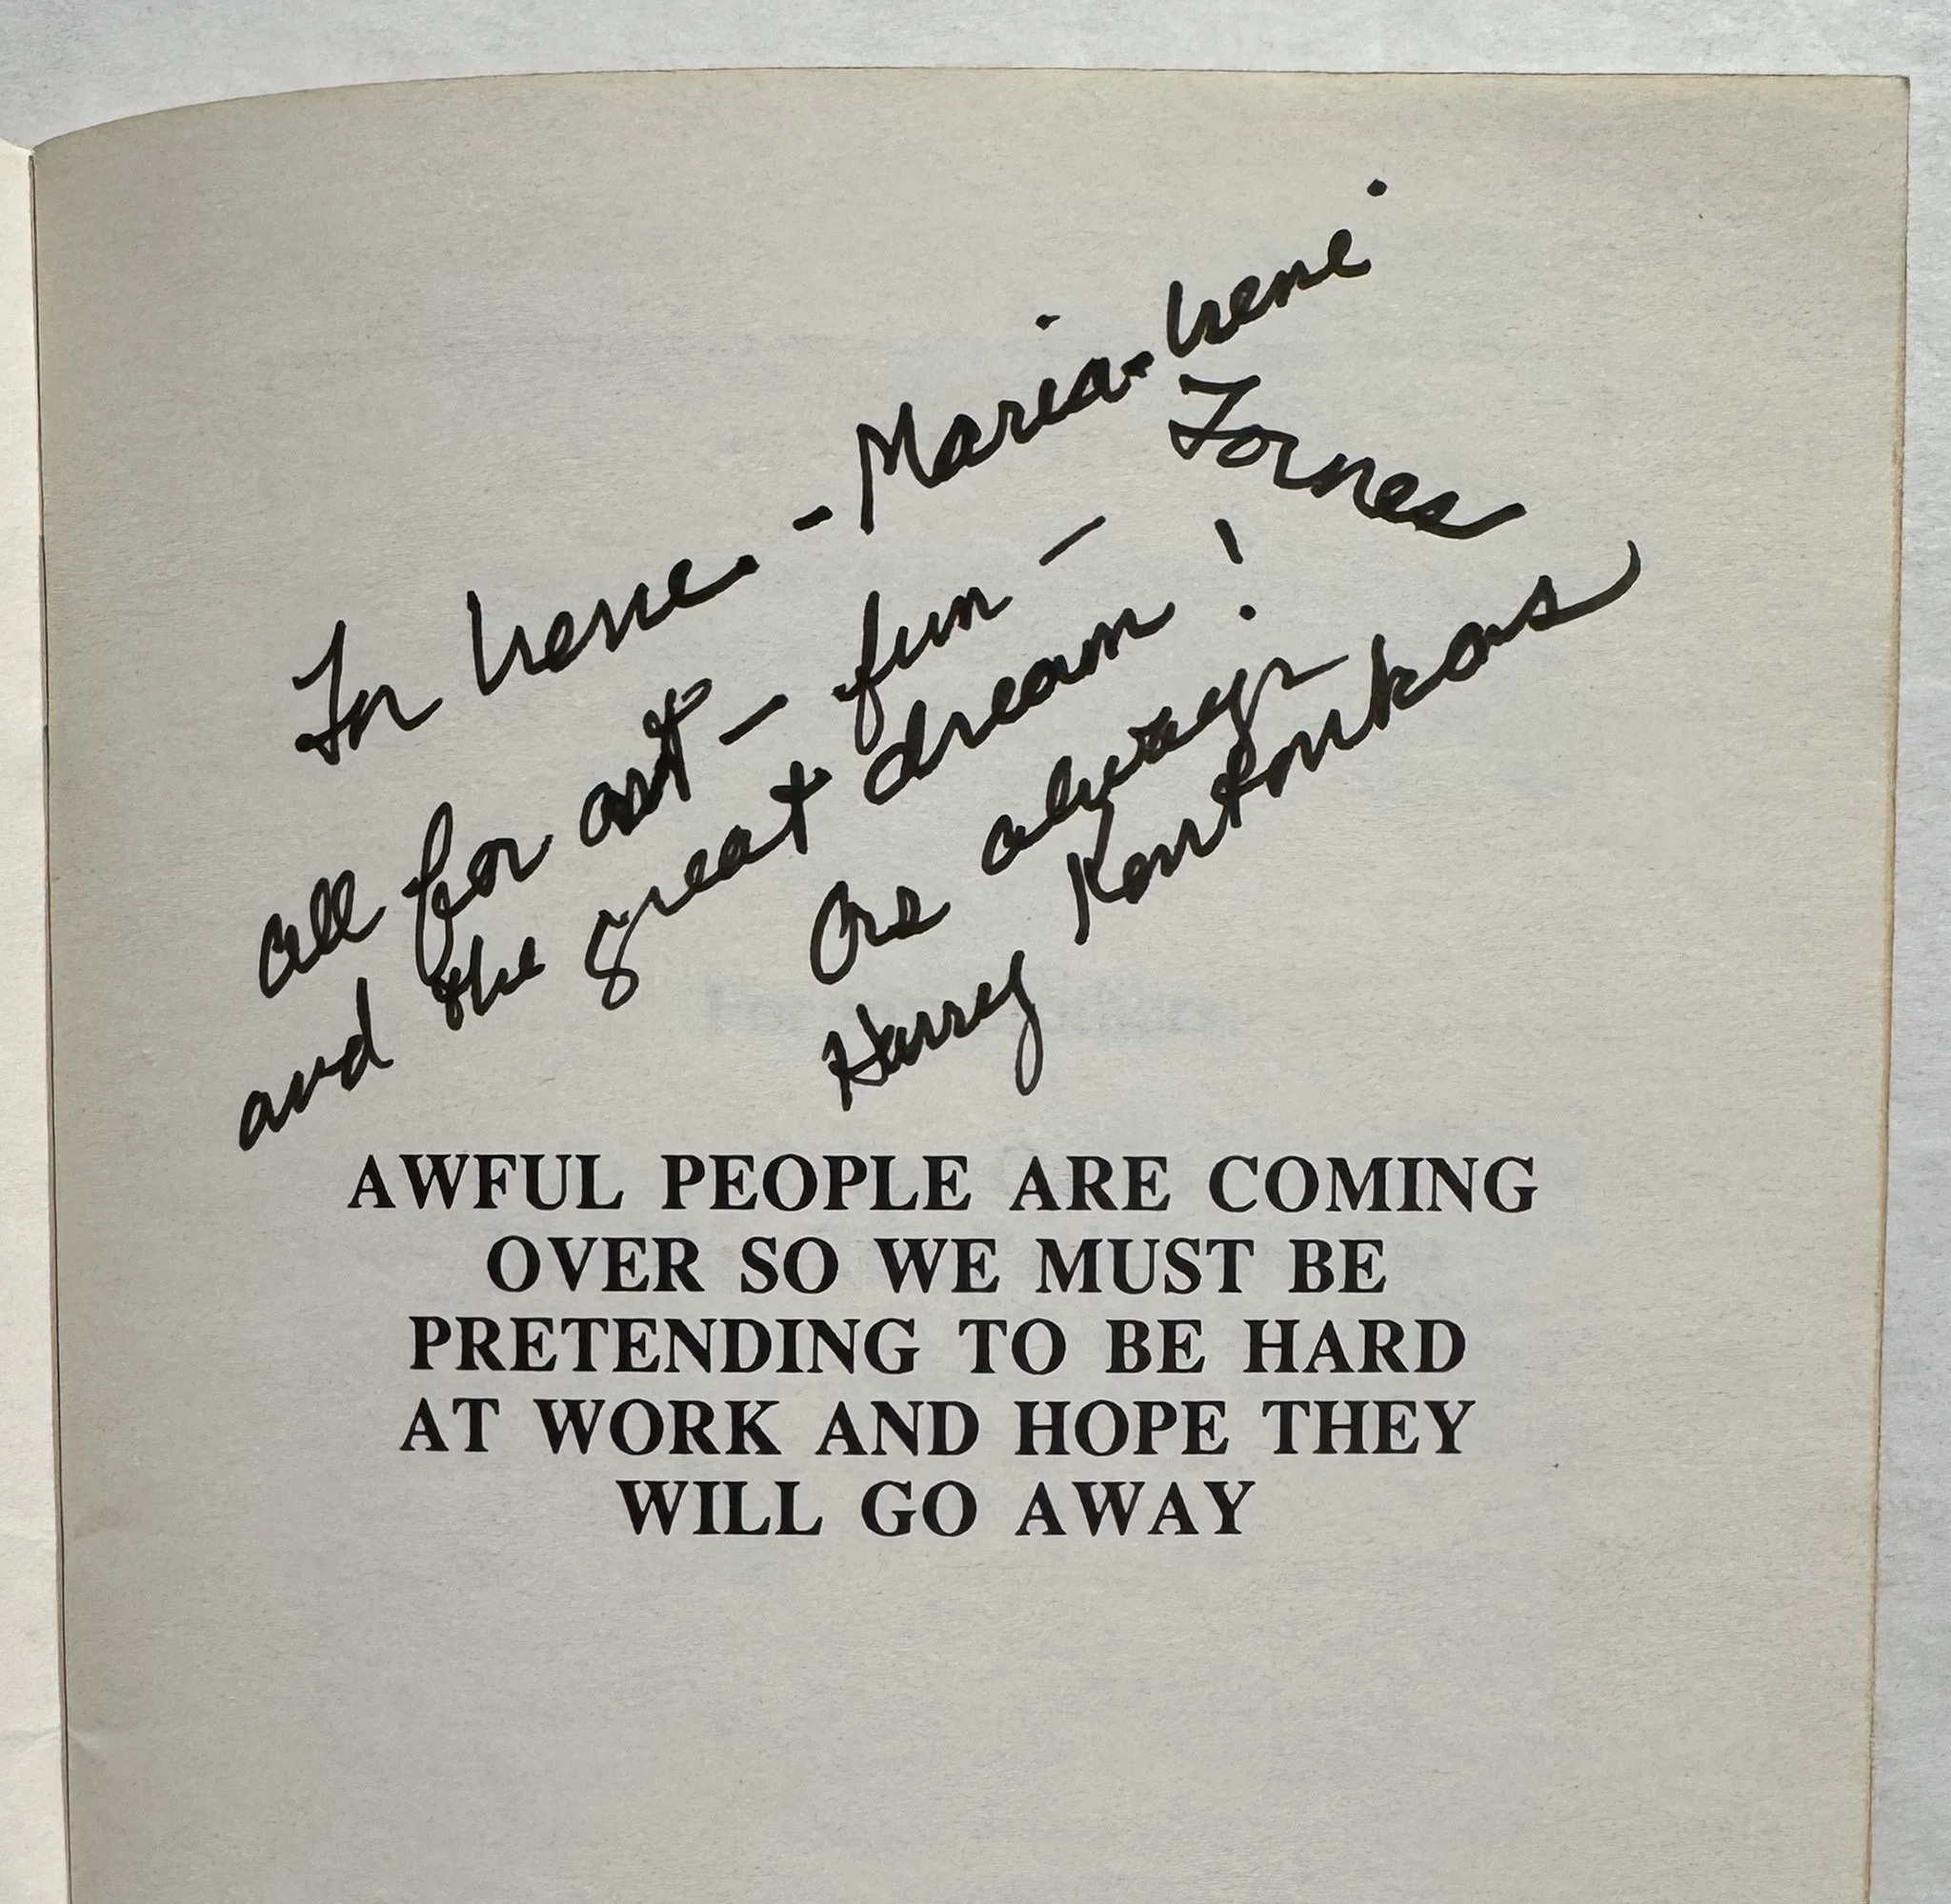 For Irene. - Maria-Irene
Fornes
all for art - fun -
and the great dream!
As always
Harry Kondoleon
AWFUL PEOPLE ARE COMING
OVER SO WE MUST BE
PRETENDING TO BE HARD
AT WORK AND HOPE THEY
WILL GO AWAY